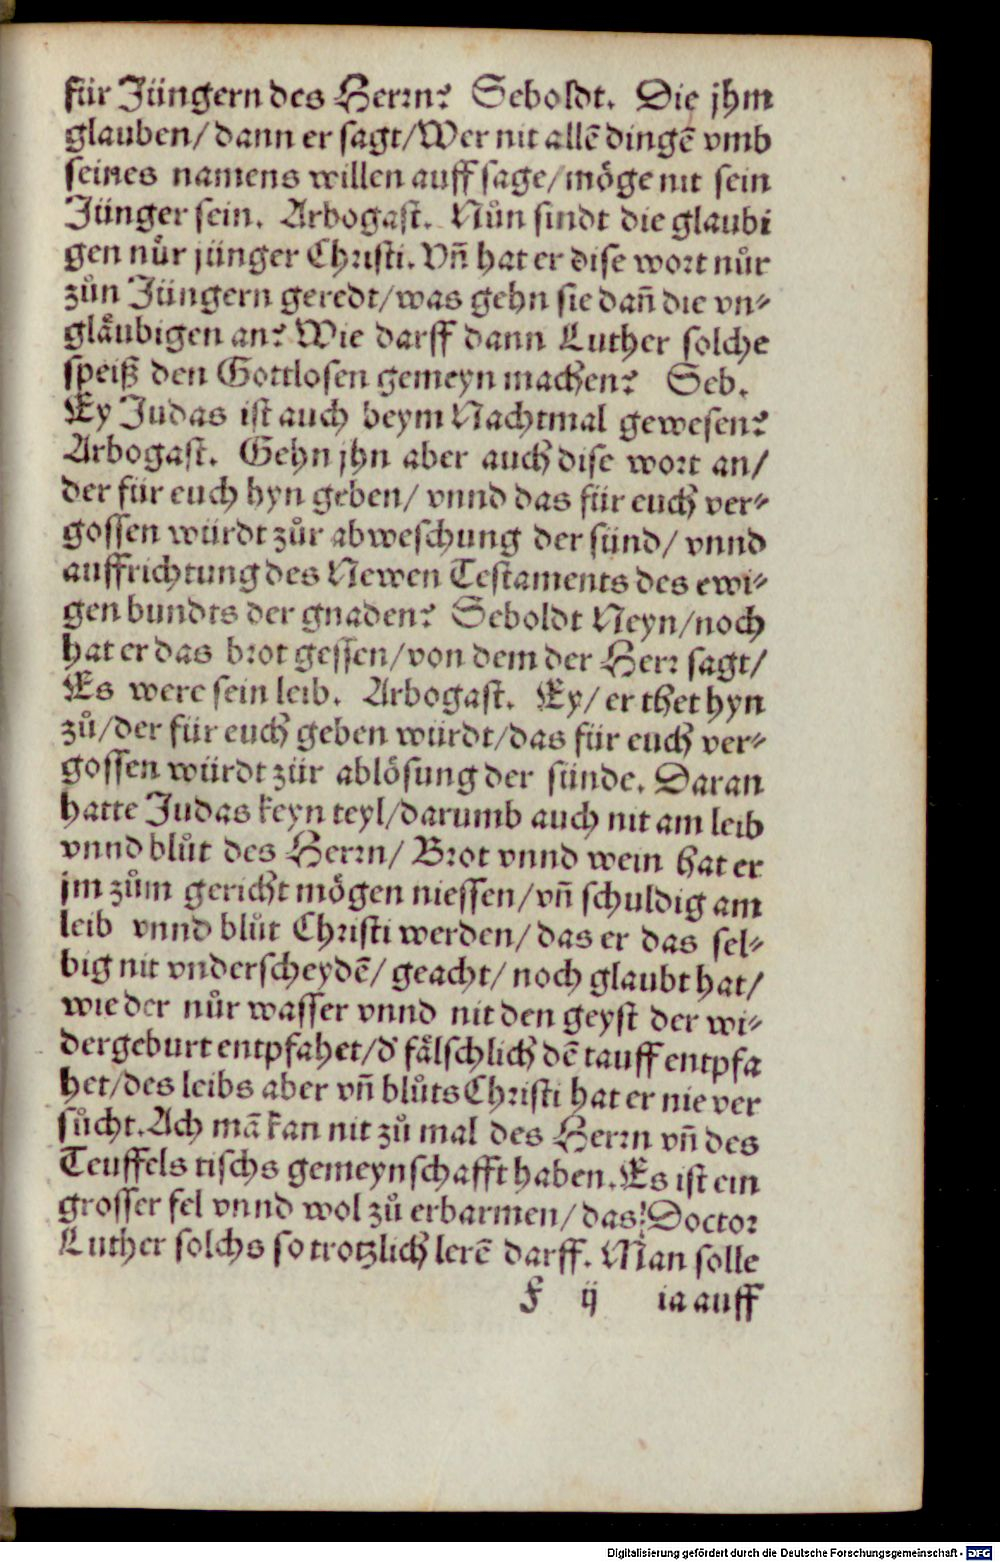 für Jüngern des Herrn? Seboldt. Die jhm
glauben/ dann er sagt/ Wer nit allē dingē vmb
seines namens willen auff sage/ möge nit sein
Jünger sein. Arbogast. Nůn sindt die glaubi
gen nůr jünger Christi. Vñ hat er dise wort nůr
zůn Jüngern geredt/ was gehn sie dañ die vn-
glåubigen an? Wie darff dann Luther solche
speiß den Gottlosen gemeyn machen? Seb.
Ey Judas ist auch beym Nachtmal gewesen?
Arbogast. Gehn jhn aber auch dise wort an/
der für euch hyn geben/ vnnd das für euch ver-
gossen würdt zůr abweschung der sünd/ vnnd
auffrichtung des Newen Testaments des ewi-
gen bundts der gnaden? Seboldt Neyn/ noch
hat er das brot gessen/ von dem der Herr sagt/
Es were sein leib. Arbogast. Ey/ er thet hyn
zů/ der für euch geben würdt/ das für euch ver-
gossen würdt zür ablösung der sünde. Daran
hatte Judas keyn teyl/ darumb auch nit am leib
vnnd blůt des Herrn/ Brot vnnd wein hat er
jm zům gericht mögen niessen/ vñ schuldig am
leib vnnd blůt Christi werden/ das er das sel-
big nit vnderscheydē/ geacht/ noch glaubt hat/
wie der nůr wasser vnnd nit den geyst der wi-
dergeburt entpfahet/ d' fålschlich dē tauff entpfa
het/ des leibs aber vñ blůts Christi hat er nie ver
sůcht. Ach mā kan nit zů mal des Herrn vñ des
Teuffels tischs gemeynschafft haben. Es ist ein
grosser fel vnnd wol zů erbarmen/ das Doctor
Luther solchs so trotzlich lerē darff. Man solle
F ij ia auff
Digitalisierung gefördert durch die Deutsche Forschungsgemeinschaft - DFG